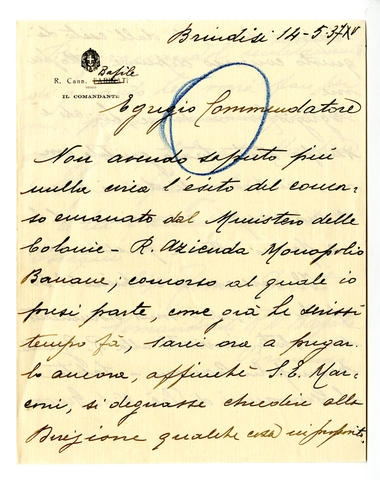 Brindisi 14-5-37 XV
Basile
R. Cann.
IL COMANDANTE
Egregio Commendatore
Non avendo saputo più
nulla circa l'esito del concor-
so emanato dal Ministero delle
Colonie - R. Azienda Monopolio
Banane; concorso al quale io
presi parte, come già Le scrissi
tempo fà, sarei ora a pregar-
la ancora, affinchè S. E. Mar-
coni, si degnasse chiedere alla
Direzione qualche cosa in proposito.